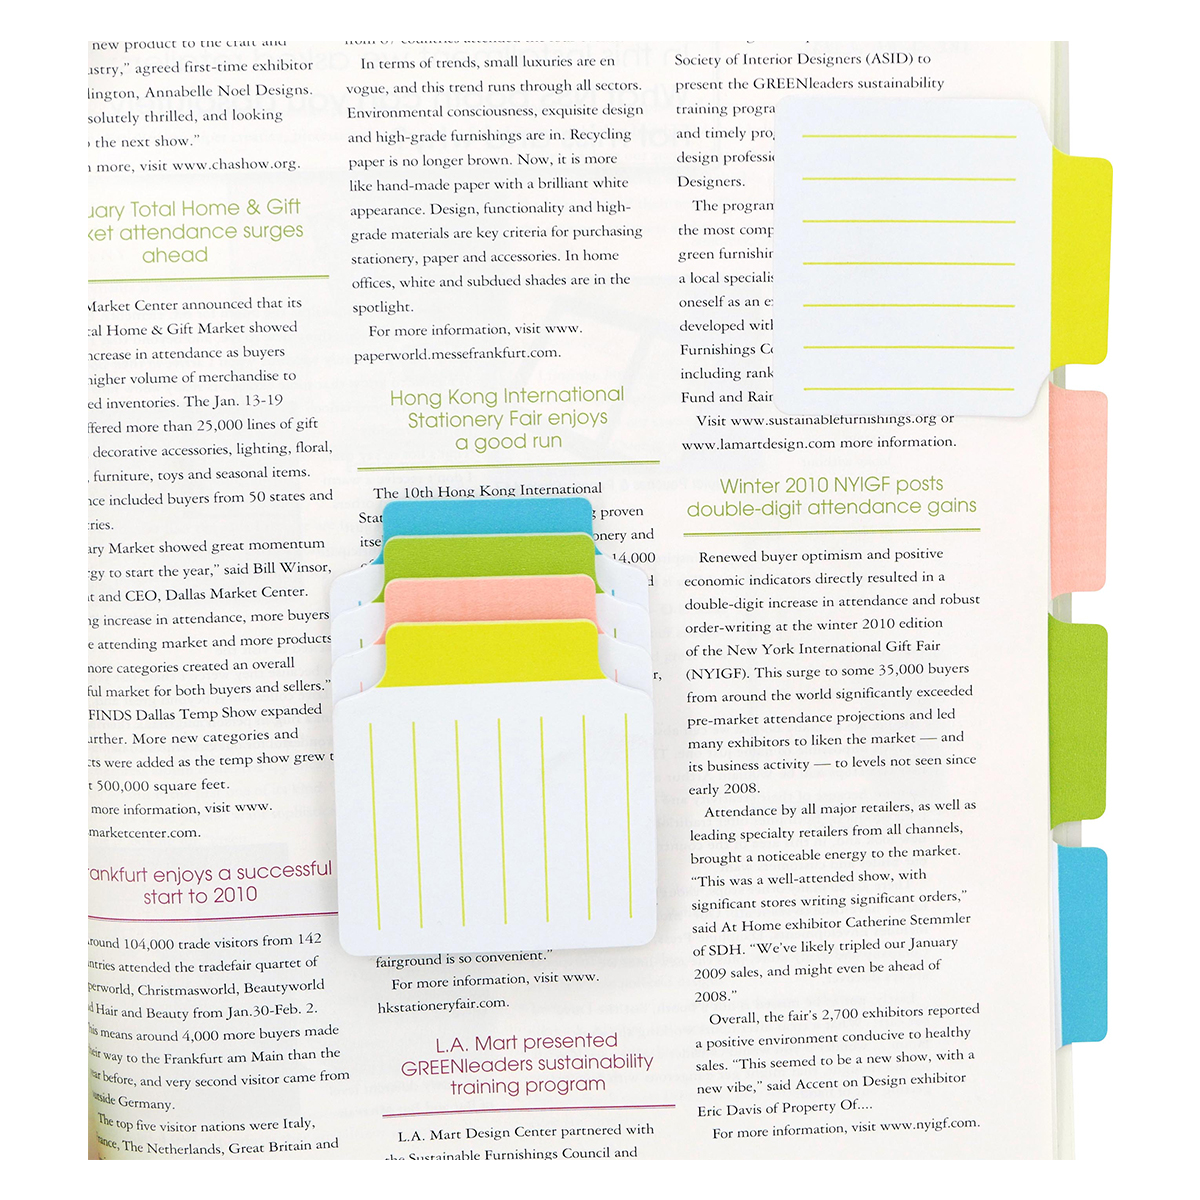 new product to the craft and
ustry,” agreed first-time exhibitor
lington, Annabelle Noel Designs.
solutely thrilled, and looking
the next show.”
more, visit www.chashow.org.
uary Total Home & Gift
ket attendance surges
ahead
Market Center announced that its
al Home & Gift Market showed
ncrease in attendance as buyers
higher volume of merchandise to
ed inventories. The Jan. 13-19
ffered more than 25,000 lines of gift
decorative accessories, lighting, floral,
, furniture, toys and seasonal items.
nce included buyers from 50 states and
ries.
ary Market showed great momentum
gy to start the year,” said Bill Winsor,
t and CEO, Dallas Market Center.
ng increase in attendance, more buyers
e attending market and more products
more categories created an overall
ful market for both buyers and sellers.”
FINDS Dallas Temp Show expanded
urther. More new categories and
cts were added as the temp show grew t
t 500,000 square feet.
more information, visit www.
marketcenter.com.
rankfurt enjoys a successful
start to 2010
round 104,000 trade visitors from 142
ntries attended the tradefair quartet of
perworld, Christmasworld, Beautyworld
d Hair and Beauty from Jan.30-Feb. 2.
his means around 4,000 more buyers made
heir way to the Frankfurt am Main than the
ear before, and very second visitor came from
utside Germany.
The top five visitor nations were Italy,
rance, The Netherlands, Great Britain and
from 67 countries attended the
In terms of trends, small luxuries are en
vogue, and this trend runs through all sectors.
Environmental consciousness, exquisite design
and high-grade furnishings are in. Recycling
paper is no longer brown. Now, it is more
like hand-made paper with a brilliant white
appearance. Design, functionality and high-
grade materials are key criteria for purchasing
stationery, paper and accessories. In home
offices, white and subdued shades are in the
spotlight.
For more information, visit www.
paperworld.messefrankfurt.com.
Hong Kong International
Stationery Fair enjoys
a good run
The 10th Hong Kong International
Stat g proven
itse onery and
14,000
d
r,
fairground is so convenient.”
For more information, visit www.
hkstationeryfair.com.
L.A. Mart presented
GREENleaders sustainability
training program
L.A. Mart Design Center partnered with
the Sustainable Furnishings Council and
Society of Interior Designers (ASID) to
present the GREENleaders sustainability
training progra
and timely proj
design professi
Designers.
The program
the most comp
green furnishin
a local specialis
oneself as an e
developed with
Furnishings Co
including rank
Fund and Rain
Visit www.sustainablefurnishings.org or
www.lamartdesign.com more information.
Winter 2010 NYIGF posts
double-digit attendance gains
Renewed buyer optimism and positive
economic indicators directly resulted in a
double-digit increase in attendance and robust
order-writing at the winter 2010 edition
of the New York International Gift Fair
(NYIGF). This surge to some 35,000 buyers
from around the world significantly exceeded
pre-market attendance projections and led
many exhibitors to liken the market — and
its business activity — to levels not seen since
early 2008.
Attendance by all major retailers, as well as
leading specialty retailers from all channels,
brought a noticeable energy to the market.
“This was a well-attended show, with
significant stores writing significant orders,”
said At Home exhibitor Catherine Stemmler
of SDH. “We’ve likely tripled our January
2009 sales, and might even be ahead of
2008.”
Overall, the fair’s 2,700 exhibitors reported
a positive environment conducive to healthy
sales. “This seemed to be a new show, with a
new vibe,” said Accent on Design exhibitor
Eric Davis of Property Of....
For more information, visit www.nyigf.com.